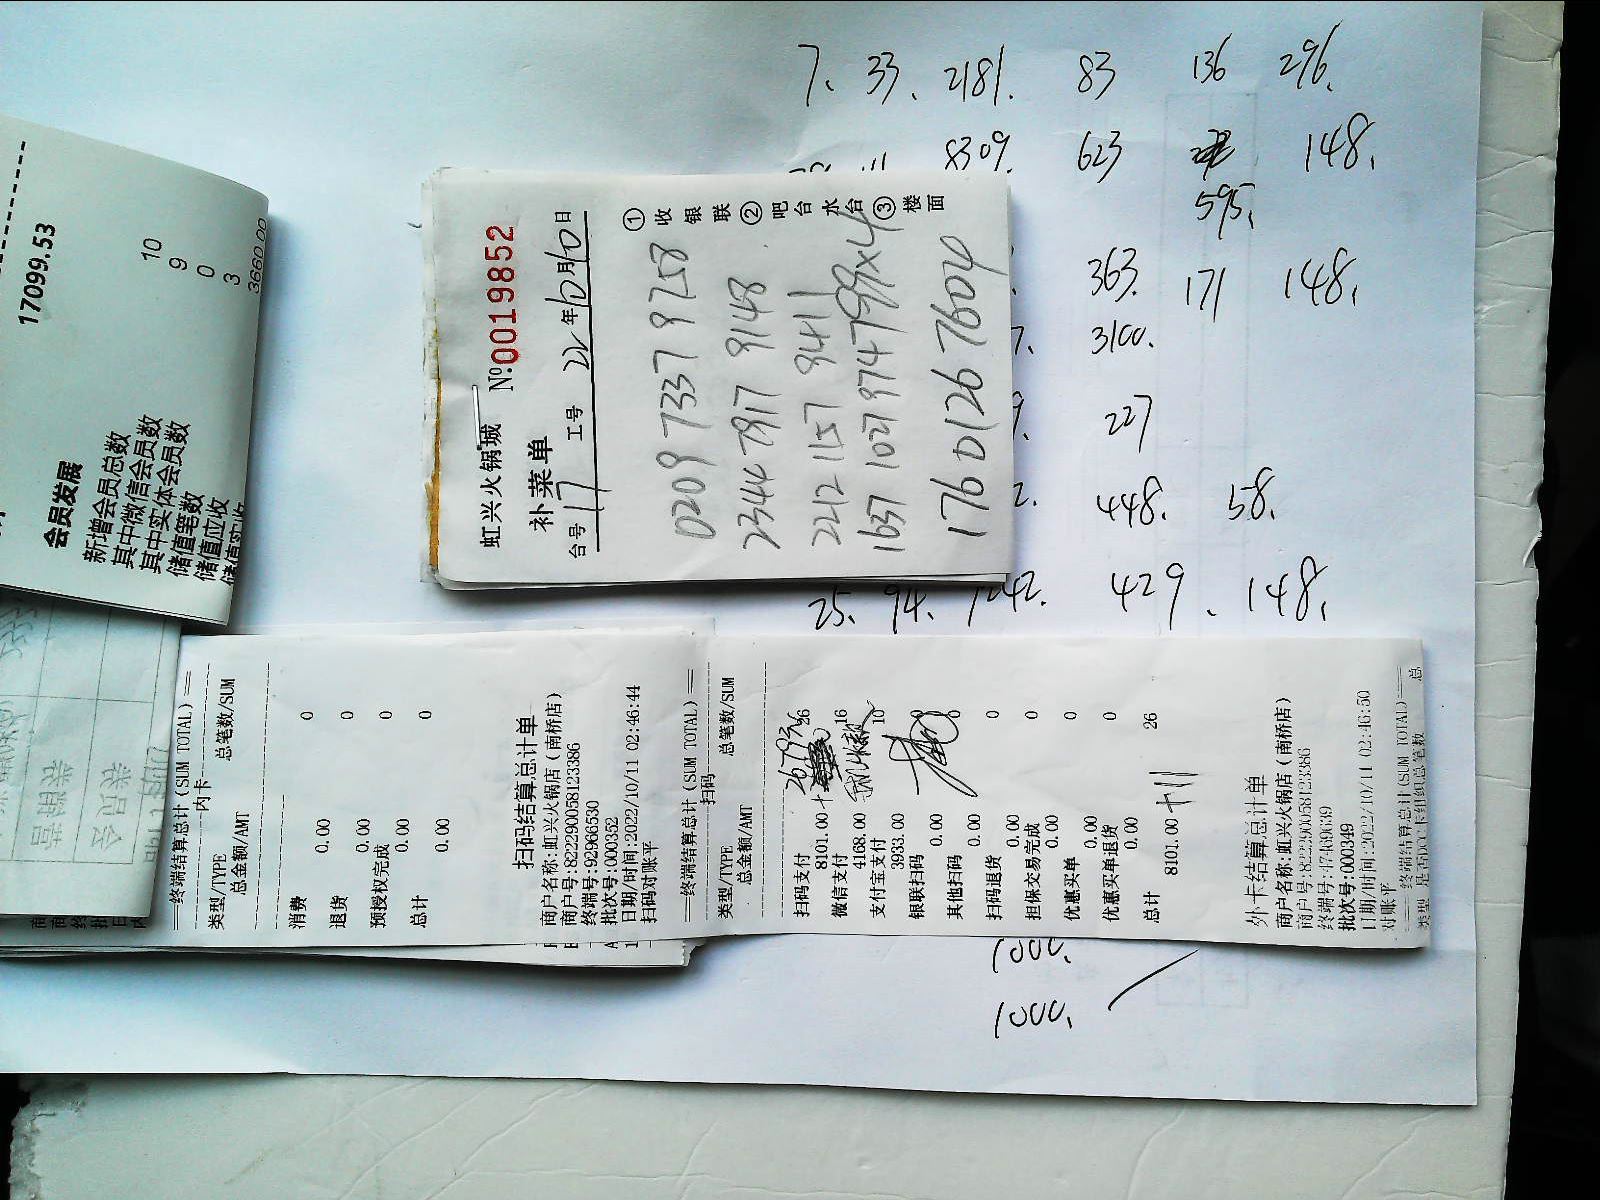 7. 33. 2181. 83 136 296.
8309. 623 148.
595.
363. 171 148.
3100.
227
448. 58.
25. 94. 1242. 429. 148.
1000.
1000.
17099.53
会员发展
新增会员总数 10
其中微信会员数 9
其中实体会员数 0
储值笔数 3
储值应收 3660.00
虹兴火锅城 №:0019852
补菜单
台号 17 工号 22年10月10日
①收银联②吧台水台③楼面
0209 7337 9758
2344 7917 9148
2212 1157 9411
1637 1027 9747 799×4
176 0126 7604
==终端结算总计(SUM TOTAL)==
内卡
类型/TYPE 总笔数/SUM
总金额/AMT
消费 0
0.00
退货 0
0.00
预授权完成 0
0.00
总计 0
0.00
扫码结算总计单
商户名称:虹兴火锅店(南桥店)
商户号:822290058123386
终端号:92966530
批次号:000352
日期/时间:2022/10/11 02:46:44
扫码对账平
==终端结算总计(SUM TOTAL)==
扫码
类型/TYPE 总笔数/SUM
总金额/AMT
扫码支付 26
8101.00
微信支付 16
4168.00
支付宝支付 10
3933.00
银联扫码 0
0.00
其他扫码 0
0.00
扫码退货 0
0.00
担保交易完成 0
0.00
优惠买单 0
0.00
优惠买单退货 0
0.00
总计 26
8101.00 +11
外卡结算总计单
商户名称:虹兴火锅店(南桥店)
商户号:822290058123386
终端号:47489639
批次号:000349
日期/时间:2022/10/11 02:46:50
对账平
==终端结算总计(SUM TOTAL)==